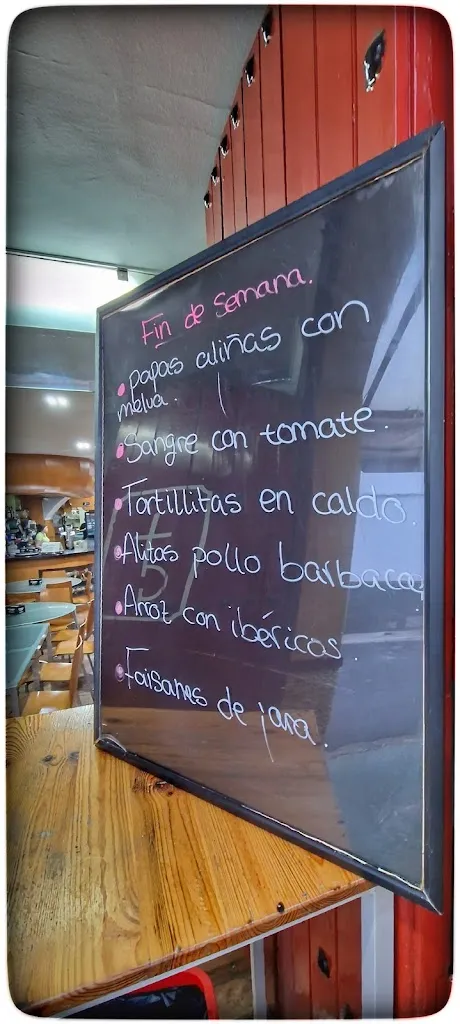 Fin de Semana.
• papas aliñas con
melva.
• Sangre con tomate.
• Tortillitas en caldo.
• Alitas pollo barbacoa
• Arroz con ibéricos
• Faisanes de jara.